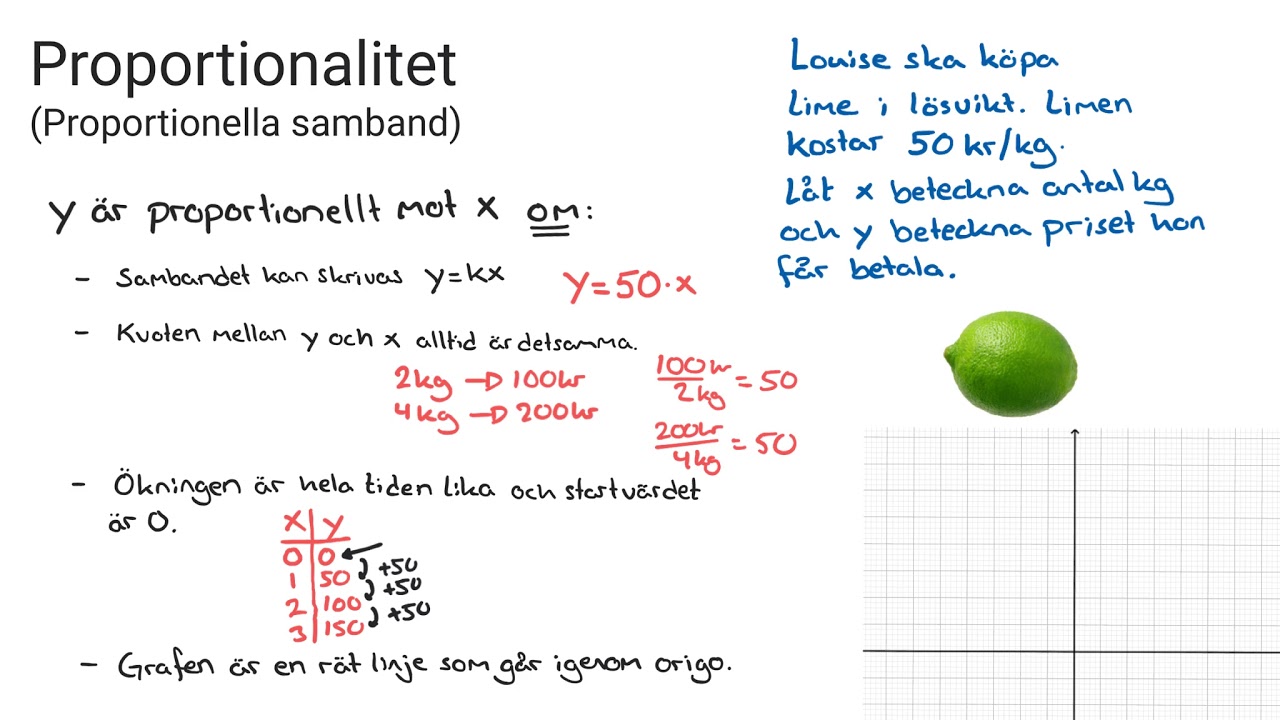 Proportionalitet
(Proportionella samband)
y är proportionellt mot x om:
- Sambandet kan skrivas y=kx
y=50·x
- Kvoten mellan y och x alltid är detsamma.
2kg → 100kr
4kg → 200kr
100kr/2kg = 50
200kr/4kg = 50
- Ökningen är hela tiden lika och startvärdet
är 0.
x | y
0 | 0
1 | 50 +50
2 | 100 +50
3 | 150 +50
- Grafen är en rät linje som går igenom origo.
Louise ska köpa
lime i lösvikt. Limen
kostar 50 kr/kg.
Låt x beteckna antal kg
och y beteckna priset hon
får betala.